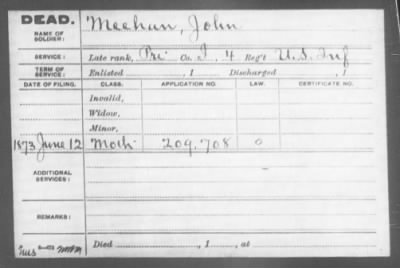 DEAD.
NAME OF SOLDIER: Meehan, John
SERVICE: Late rank, Pri Co. I, 4 Reg't U.S. Inf
TERM OF SERVICE: Enlisted , 1 Discharged , 1
DATE OF FILING. CLASS. APPLICATION NO. LAW. CERTIFICATE NO.
Invalid,
Widow,
Minor,
1873 June 12 Moth 209.708 0
ADDITIONAL SERVICES:
REMARKS:
Died , 1 , at